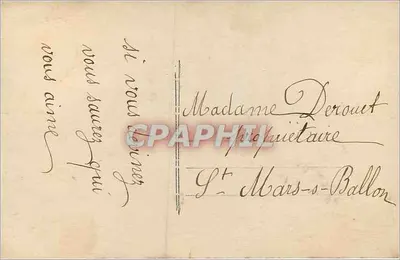 si vous devinez
vous saurez qui
vous aime
Madame Derouet
Propriétaire
St Mars-s-Ballon
SPAPHIL